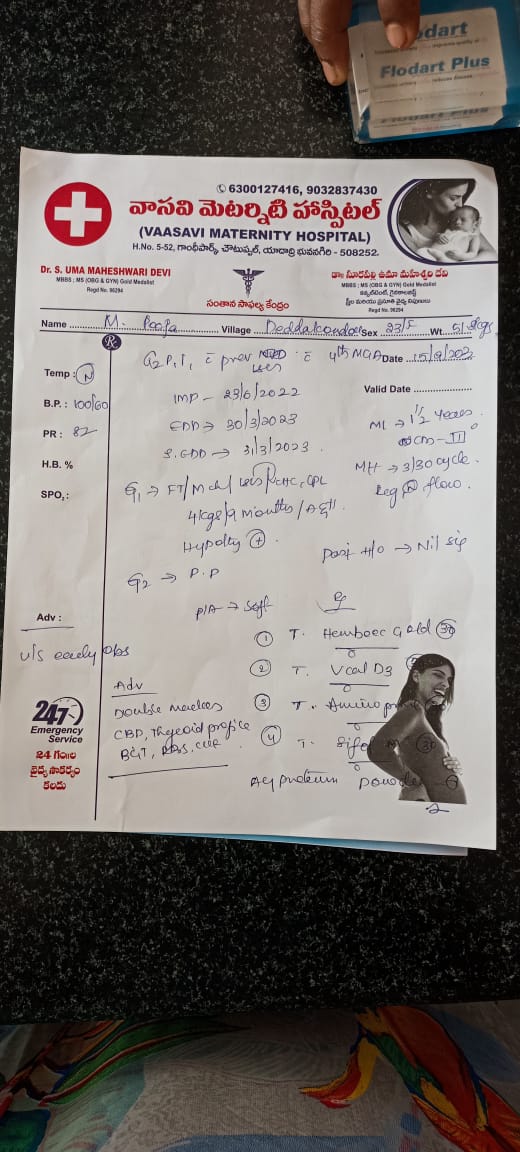 Flodart
Flodart Plus
Flodart Plus
6300127416, 9032837430
వాసవి మెటర్నిటి హాస్పిటల్
(VAASAVI MATERNITY HOSPITAL)
H.No. 5-52, గాంధీపార్క్, చౌటుప్పల్, యాదాద్రి భువనగిరి - 508252.
Dr. S. UMA MAHESHWARI DEVI
MBBS ; MS (OBG & GYN) Gold Medalist
Regd No. 96294
సంతాన సాఫల్య కేంద్రం
డా॥ సూరపల్లి ఉమా మహేశ్వరి దేవి
MBBS ; MS (OBG & GYN) Gold Medalist
Regd No. 96294
Name M. Pooja Village Sex 23/F Wt. 51
Rx
G2 P1 L1 c prev c 4th MGA Date 15/9/2022
Temp : N
Valid Date
B.P. : 100/60
LMP - 23/6/2022
PR : 82
EDD → 30/3/2023
ML → 1 1/2 years
S.EDD → 31/3/2023
H.B. %
MH → 3/30 cycle.
Reg N flow.
SPO2 :
G1 → FT/M ch/ LSCS/
4 kgs/9 months/
+
Past H/O → Nil sig
G2 → P.P
P/A → Soft
Adv :
U/S early obs
① T. Gold 30
② T. Vcal D3
③ T.
④ T. 30
Powder
Adv
Double marker
CBP, Thyroid profile
24/7
Emergency
Service
24 గంటల
వైద్య సౌకర్యం
కలదు